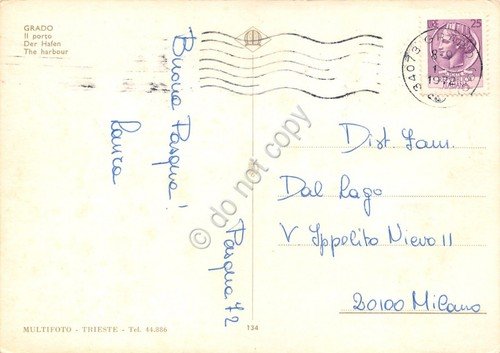 GRADO
Il porto
Der Hafen
The harbour
Buona Pasqua!
Laura
Pasqua 72
25
34073
1972
Dist. Fam.
Dal Lago
V Ippolito Nievo 11
20100 Milano
© do not copy
MULTIFOTO - TRIESTE - Tel. 44.886
134